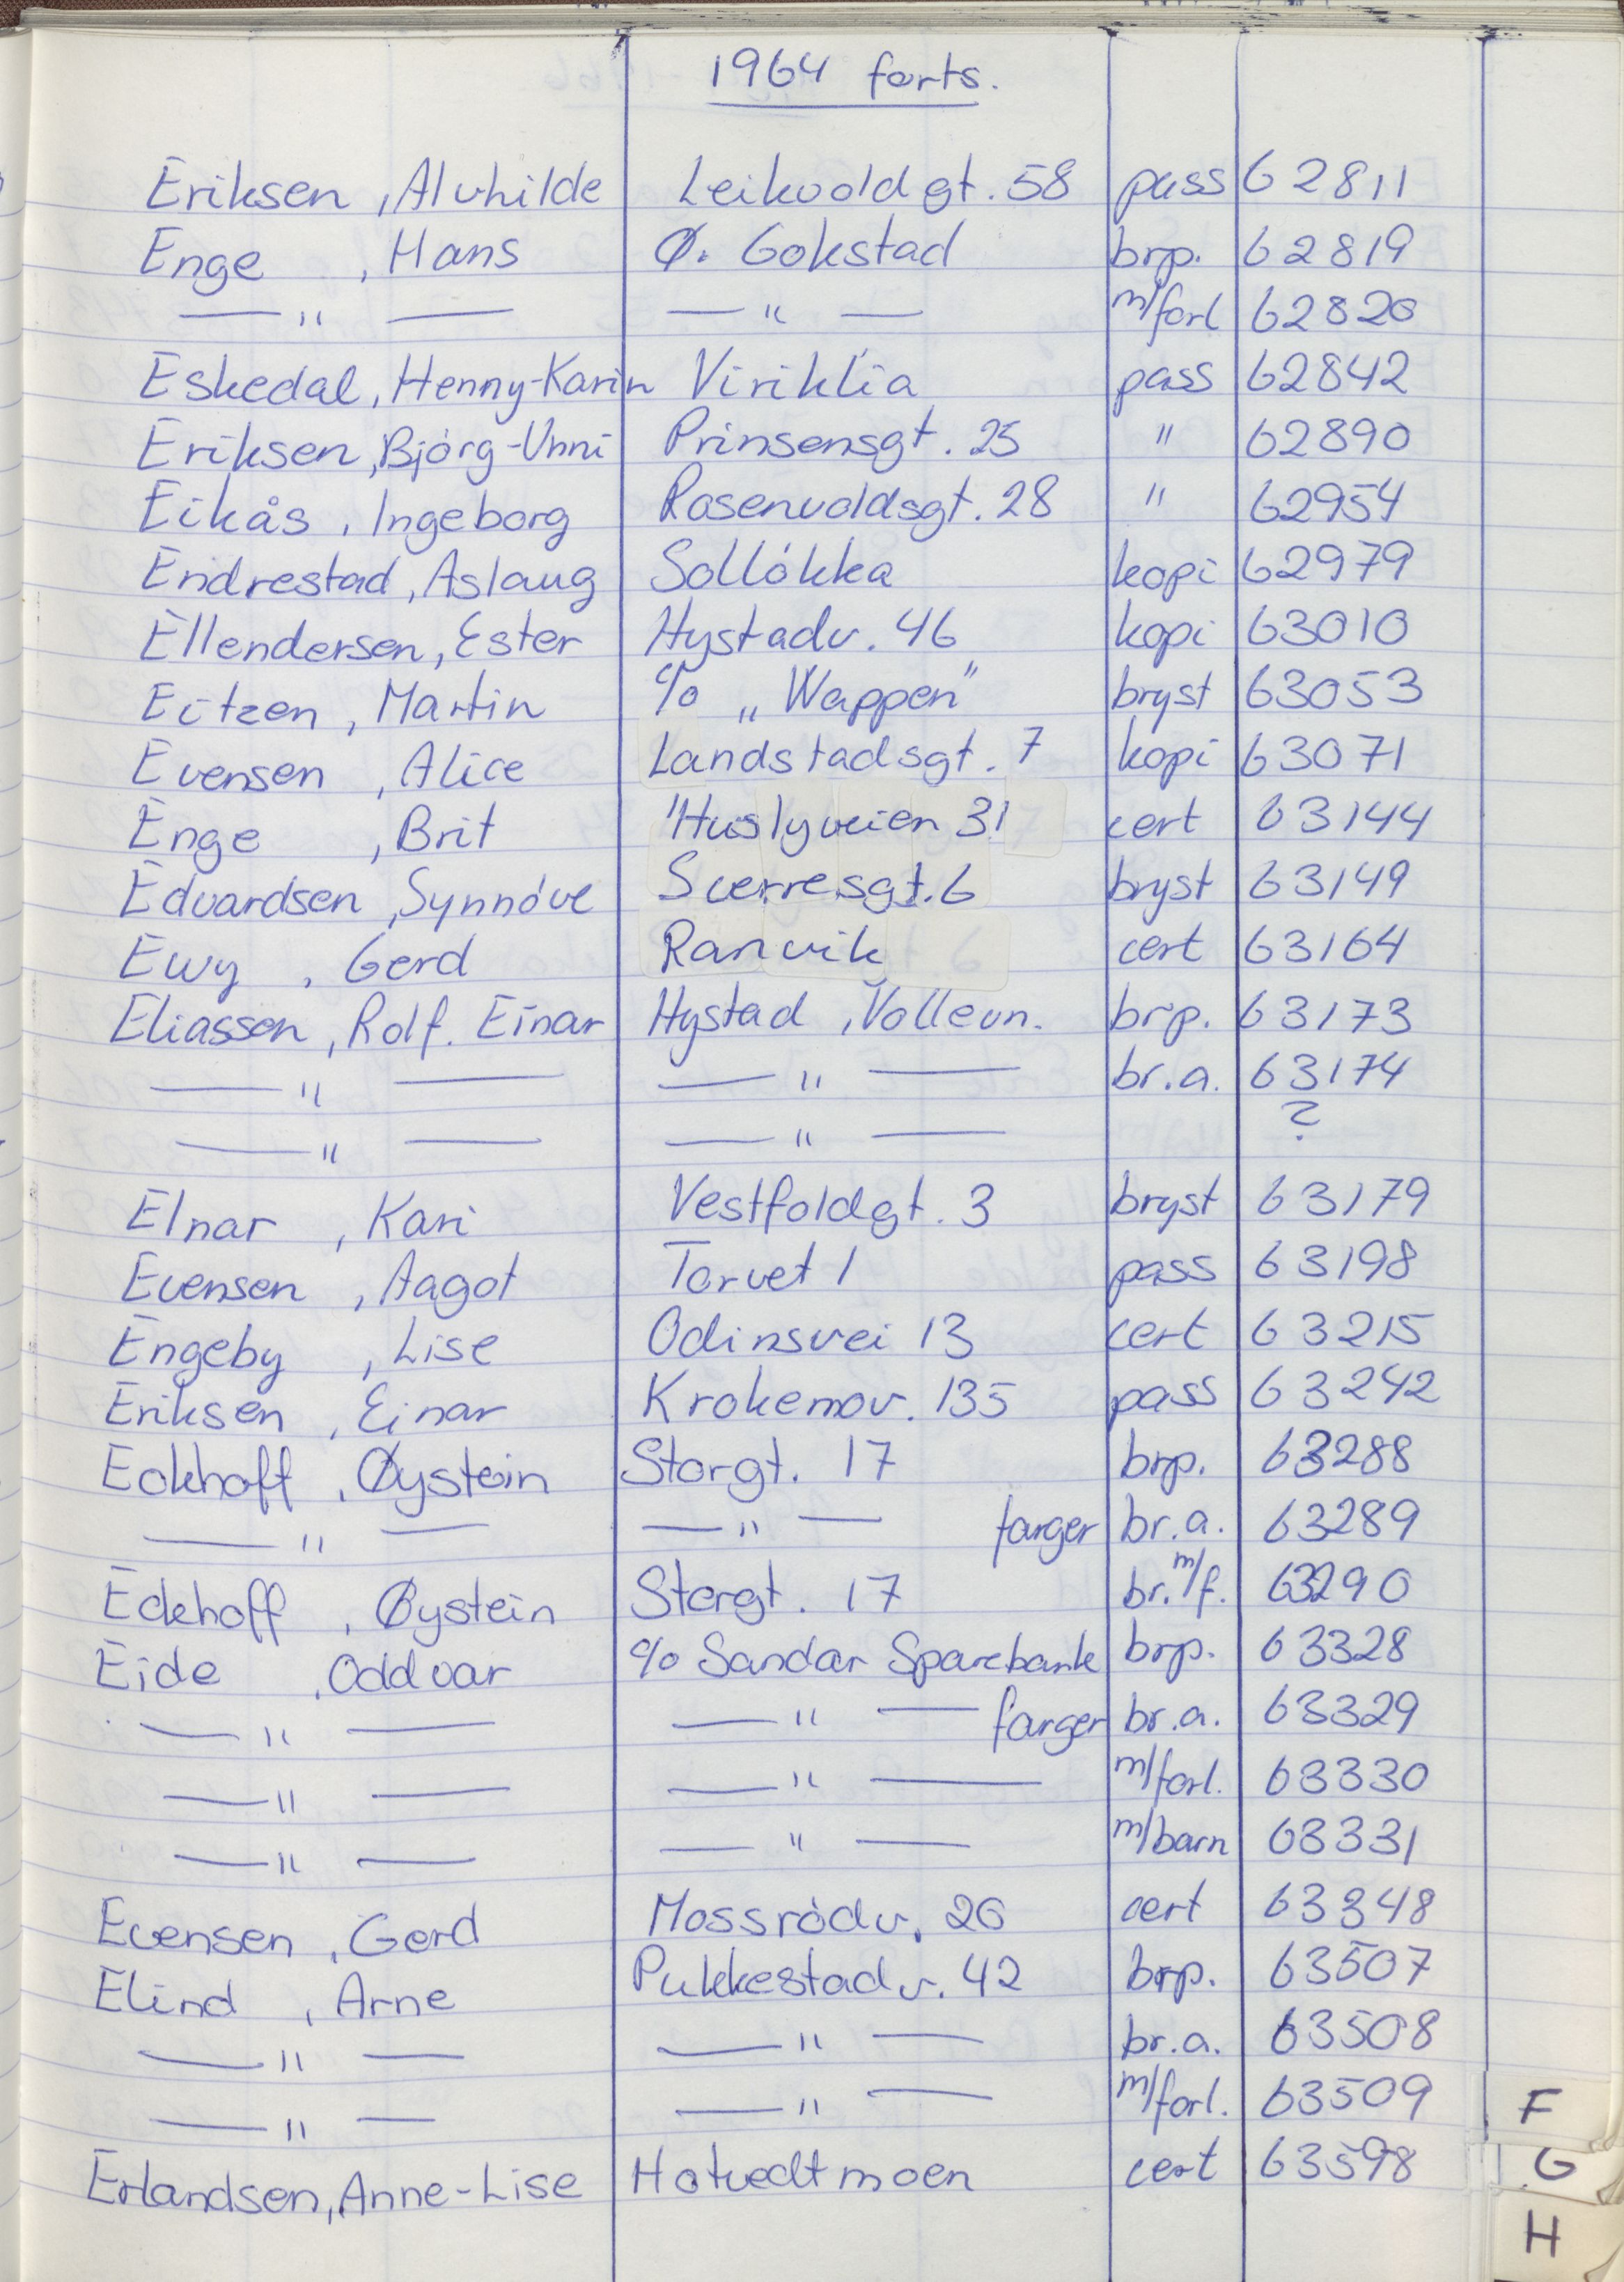 1964 forts.
Eriksen, Alvhilde Leikvoldgt. 58 pass 62811
Enge, Hans Ø. Gokstad brp. 62819
—"— —"— m/forl 62820
Eskedal, Henny-Karin Virik lia pass 62842
Eriksen, Bjórg-Unni Prinsensgt. 25 " 62890
Eikås, Ingeborg Rosenvoldsgt. 28 " 62954
Endrestad, Aslaug Sollókka kopi 62979
Ellendersen, Ester Hystadv. 46 kopi 63010
Eitzen, Martin c/o „Wappen" bryst 63053
Evensen, Alice Landstadsgt. 7 kopi 63071
Enge, Brit Huslyveien 31 cert 63144
Edvardsen, Synnóve Sverresgt. 6 bryst 63149
Ewy, Gerd Ranvik cert 63164
Eliassen, Rolf. Einar Hystad, Vollevn. brp. 63173
—"— —"— br.a. 63174
—"— —"— ?
Elnar, Kari Vestfoldgt. 3 bryst 63179
Evensen, Aagot Torvet 1 pass 63198
Engeby, Lise Odinsvei 13 cert 63215
Eriksen, Einar Krokemov. 135 pass 63242
Eckhoff, Øystein Storgt. 17 brp. 63288
—"— —"— farger br.a. 63289
Eckhoff, Øystein Storgt. 17 br. m/f. 63290
Eide, Oddvar c/o Sandar Sparebank brp. 63328
—"— —"— farger br.a. 63329
—"— —"— m/forl. 63330
—"— —"— m/barn 63331
Evensen, Gerd Mossródv. 26 cert 63348
Elind, Arne Pukkestadv. 42 brp. 63507
—"— —"— br.a. 63508
—"— —"— m/forl. 63509
Erlandsen, Anne-Lise Hotvedtmoen cert 63598
F
G
H